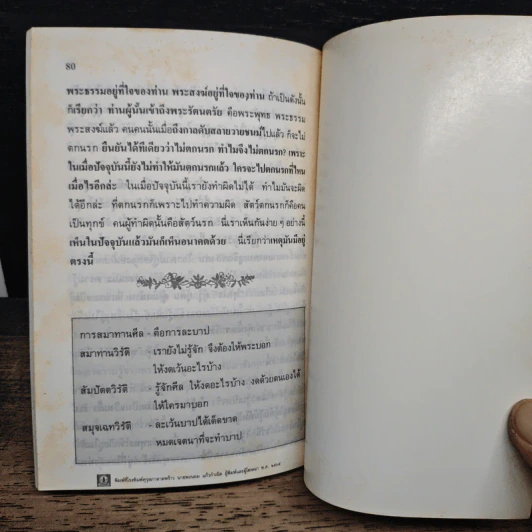 80
พระธรรมอยู่ที่ใจของท่าน พระสงฆ์อยู่ที่ใจของท่าน ถ้าเป็นดังนั้น
ก็เรียกว่า ท่านผู้นั้นเข้าถึงพระรัตนตรัย คือพระพุทธ พระธรรม
พระสงฆ์แล้ว คนคนนั้นเมื่อถึงกาลดับสลายวายชนม์ไปแล้ว ก็จะไม่
ตกนรก ยืนยันได้ทีเดียวว่าไม่ตกนรก ทำไมจึงไม่ตกนรก? เพราะ
ในเมื่อปัจจุบันนี้ยังไม่ทำให้มันตกนรกแล้ว ใครจะไปตกนรกที่ไหน
เมื่อไรอีกล่ะ ในเมื่อปัจจุบันนี้เรายังทำผิดไม่ได้ ทำไมมันจะผิด
ได้อีกล่ะ ที่ตกนรกก็เพราะไปทำความผิด สัตว์ตกนรกก็คือคน
เป็นทุกข์ คนผู้ทำผิดนั้นคือสัตว์นรก นี่เราเห็นกันง่าย ๆ อย่างนี้
เห็นในปัจจุบันแล้วมันก็เห็นอนาคตด้วย นี่เรียกว่าเหตุมันมีอยู่
ตรงนี้
การสมาทานศีล - คือการละบาป
สมาทานวิรัติ - เรายังไม่รู้จัก จึงต้องให้พระบอก
ให้งดเว้นอะไรบ้าง
สัมปัตตวิรัติ - รู้จักศีล ให้งดอะไรบ้าง งดด้วยตนเองได้
ไม่ให้ใครมาบอก
สมุจเฉทวิรัติ - ละเว้นบาปได้เด็ดขาด
หมดเจตนาที่จะทำบาป
พิมพ์ที่โรงพิมพ์คุรุสภาลาดพร้าว ผู้พิมพ์และผู้โฆษณา พ.ศ.